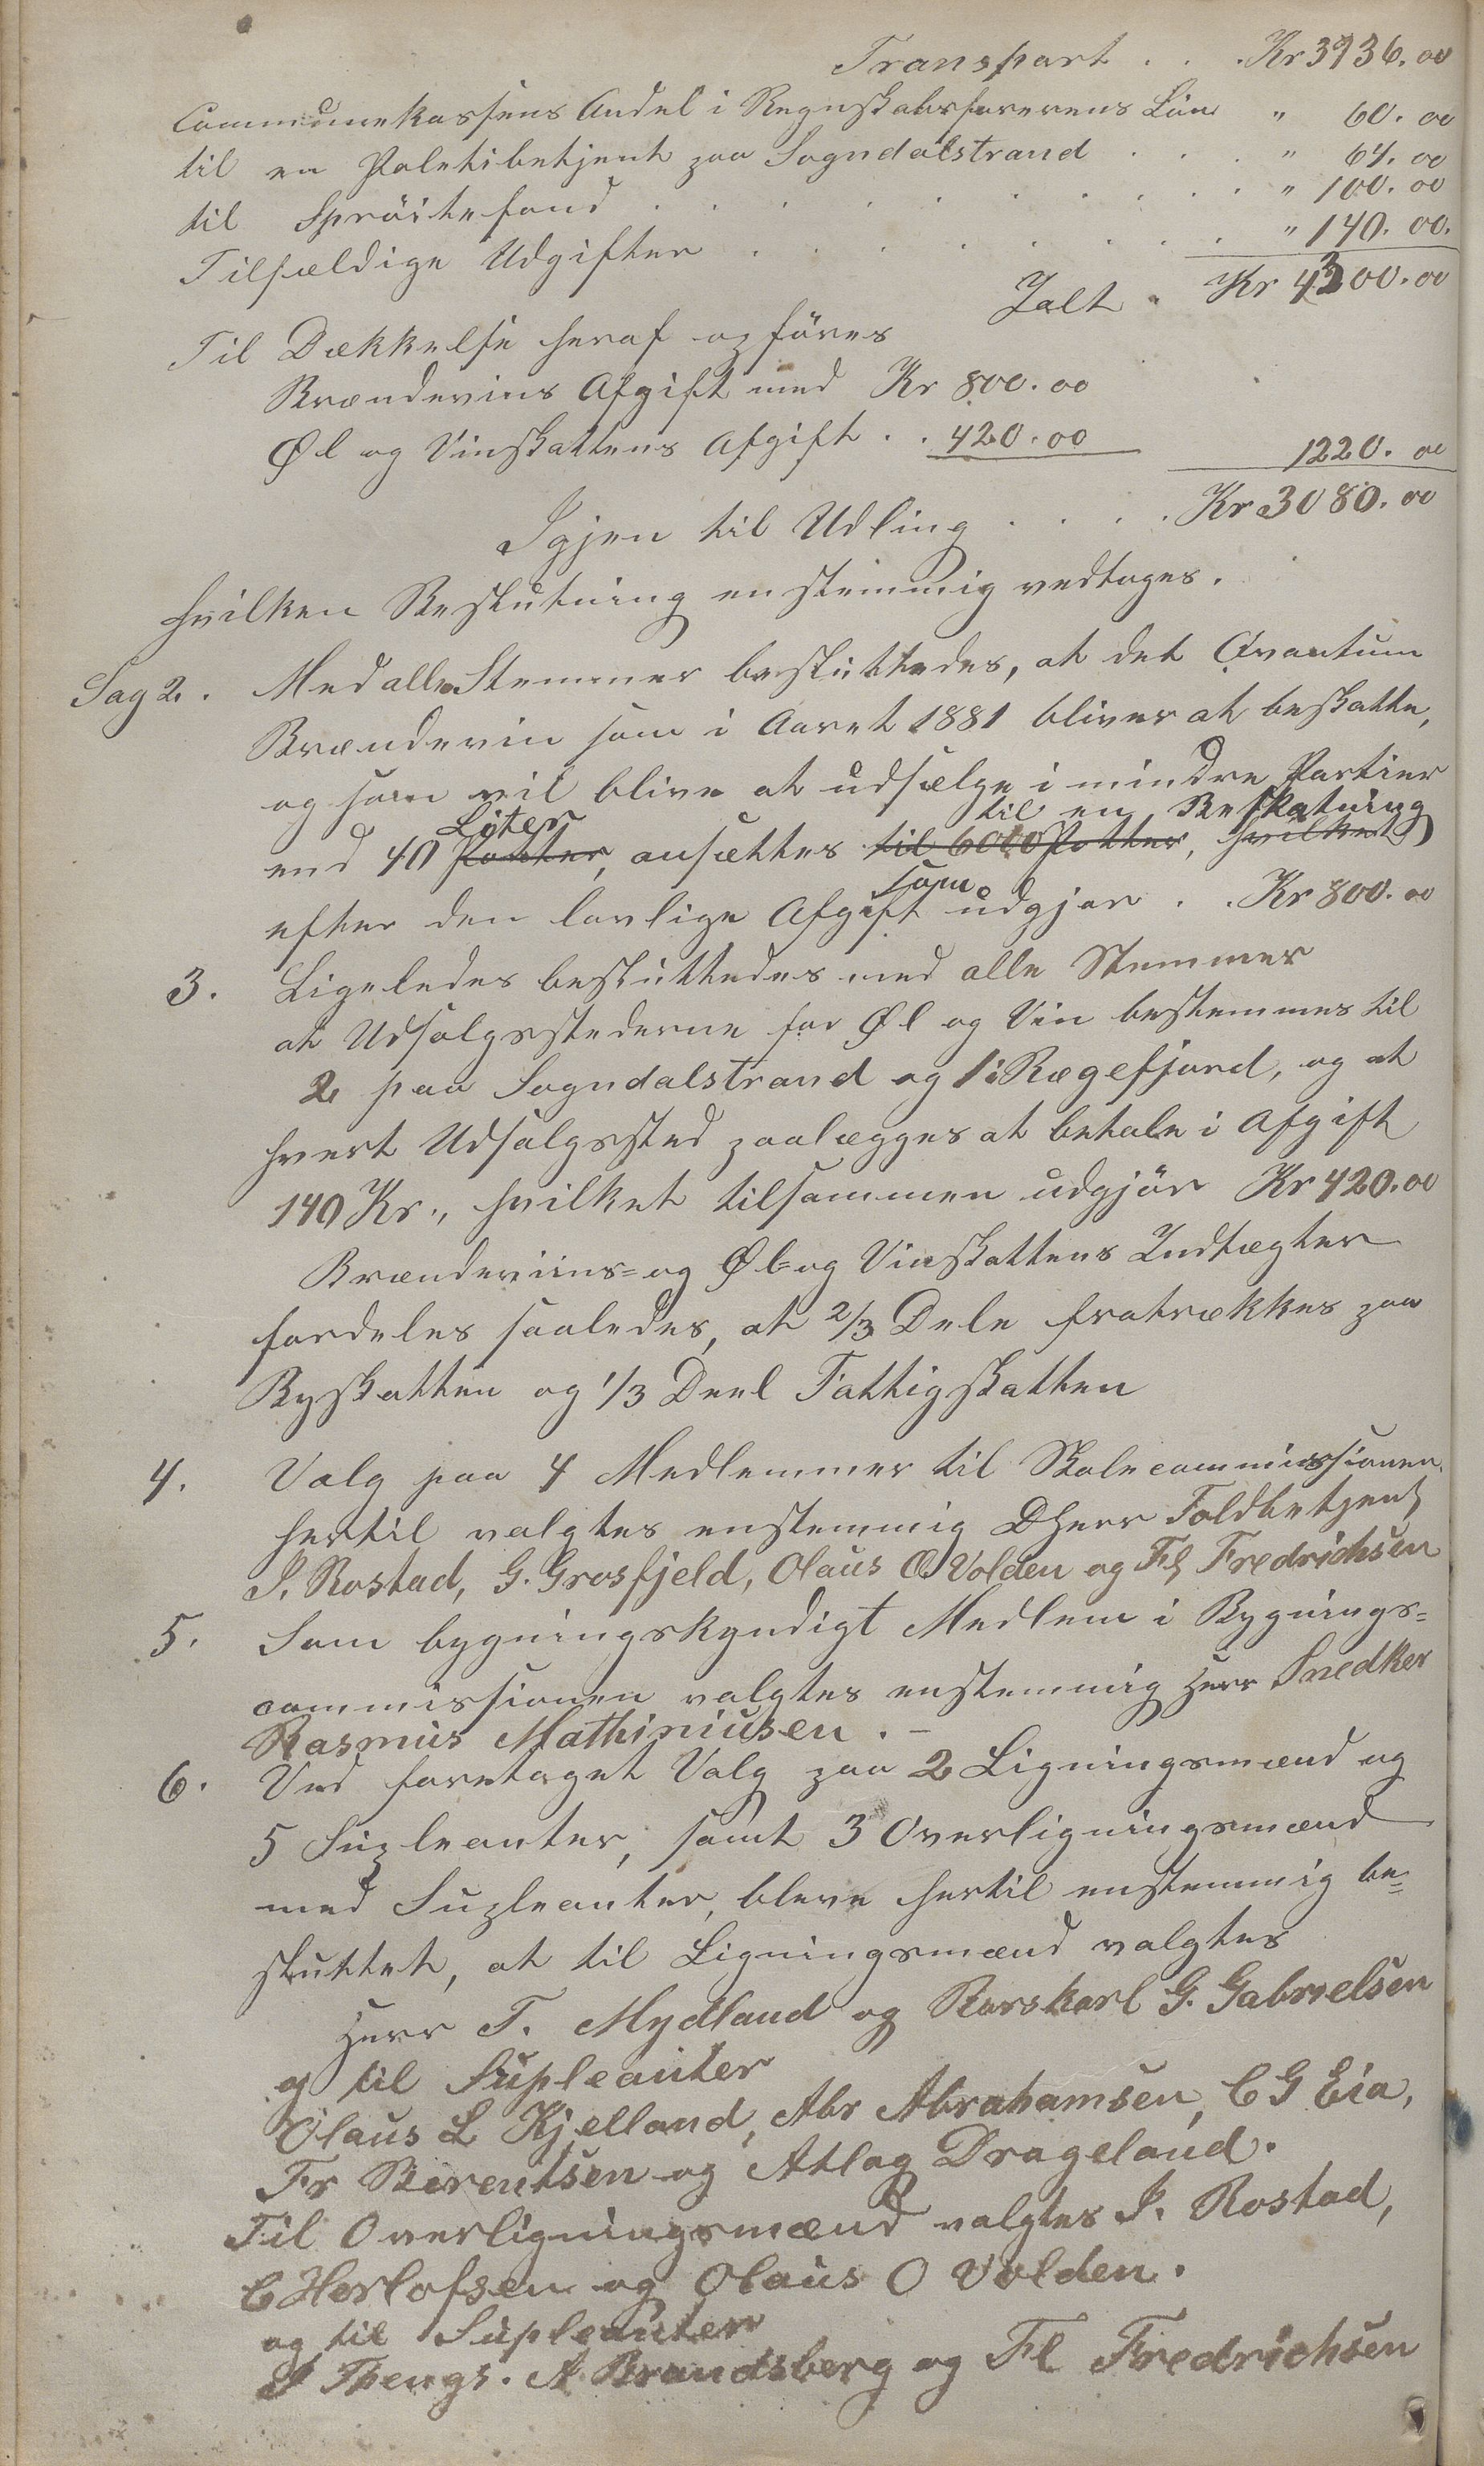 Transport . . . Kr 3936.00
Communekassens Andel i Regnskabsførerens Løn " 60.00
til en Politibetjent paa Sogndalstrand . . . " 64.00
til Sprøitefond . . . . . . . . " 100.00
Tilfældige Udgifter . . . . . . . " 140.00.
Ialt . Kr 4300.00
Til Dækkelse heraf opføres
Brændevins Afgift med Kr 800.00
Øl og Vinskattens Afgift . . 420.00 1220.00
Igjen til Udling . . . . Kr 3080.00
hvilken Beslutning enstemmig vedtages.
Sag 2. Med alle Stemmer besluttedes, at det Qvantum
Brændevin som i Aaret 1881 bliver at beskatte,
og som vil blive at udsælge i mindre Partier
Liter til en Beskatning
end 40 Potter, ansættes til 6000 Potter, hvilket
som
efter den lovlige Afgift udgjør . . Kr 800.00
3. Ligeledes besluttedes med alle Stemmer
at Udsalgsstederne for Øl og Vin bestemmes til
2 paa Sogndalstrand og 1 i Rægefjord, og at
hvert Udsalgssted paalægges at betale i Afgift
140 Kr., hvilket tilsammen udgjør Kr 420.00
Brændeviins= og Øl= og Vinskattens Indtægter
fordeles saaledes, at 2/3 Dele fratrækkes paa
Byskatten og 1/3 Deel Fattigskatten
4. Valg paa 4 Medlemmer til Skolecommissionen.
hertil valgtes enstemmig DHerr Toldbetjent
I. Rostad, G. Grosfjeld, Olaus O Volden og Fl Fredrichsen
5. Som bygningskyndigt Medlem i Bygnings=
commissionen valgtes enstemmig Herr Snedker
Rasmus Mathiniusen . –
6. Ved foretaget Valg paa 2 Ligningsmænd og
5 Supleanter, samt 3 Overligningsmænd
med Supleanter, bleve hertil enstemmig be=
sluttet, at til Ligningsmænd valgtes
Herr T. Mydland og Rorskarl G. Gabrielsen
og til Supleanter
Olaus L Kjelland, Abr Abrahamsen, C G Eia,
Fr Berentsen og Atlag Drageland.
Til Overligningsmænd valgtes I. Rostad,
C Herlofsen og Olaus O Volden.
og til Supleanter
I Thengs. A Brandsberg og Fl Fredrichsen